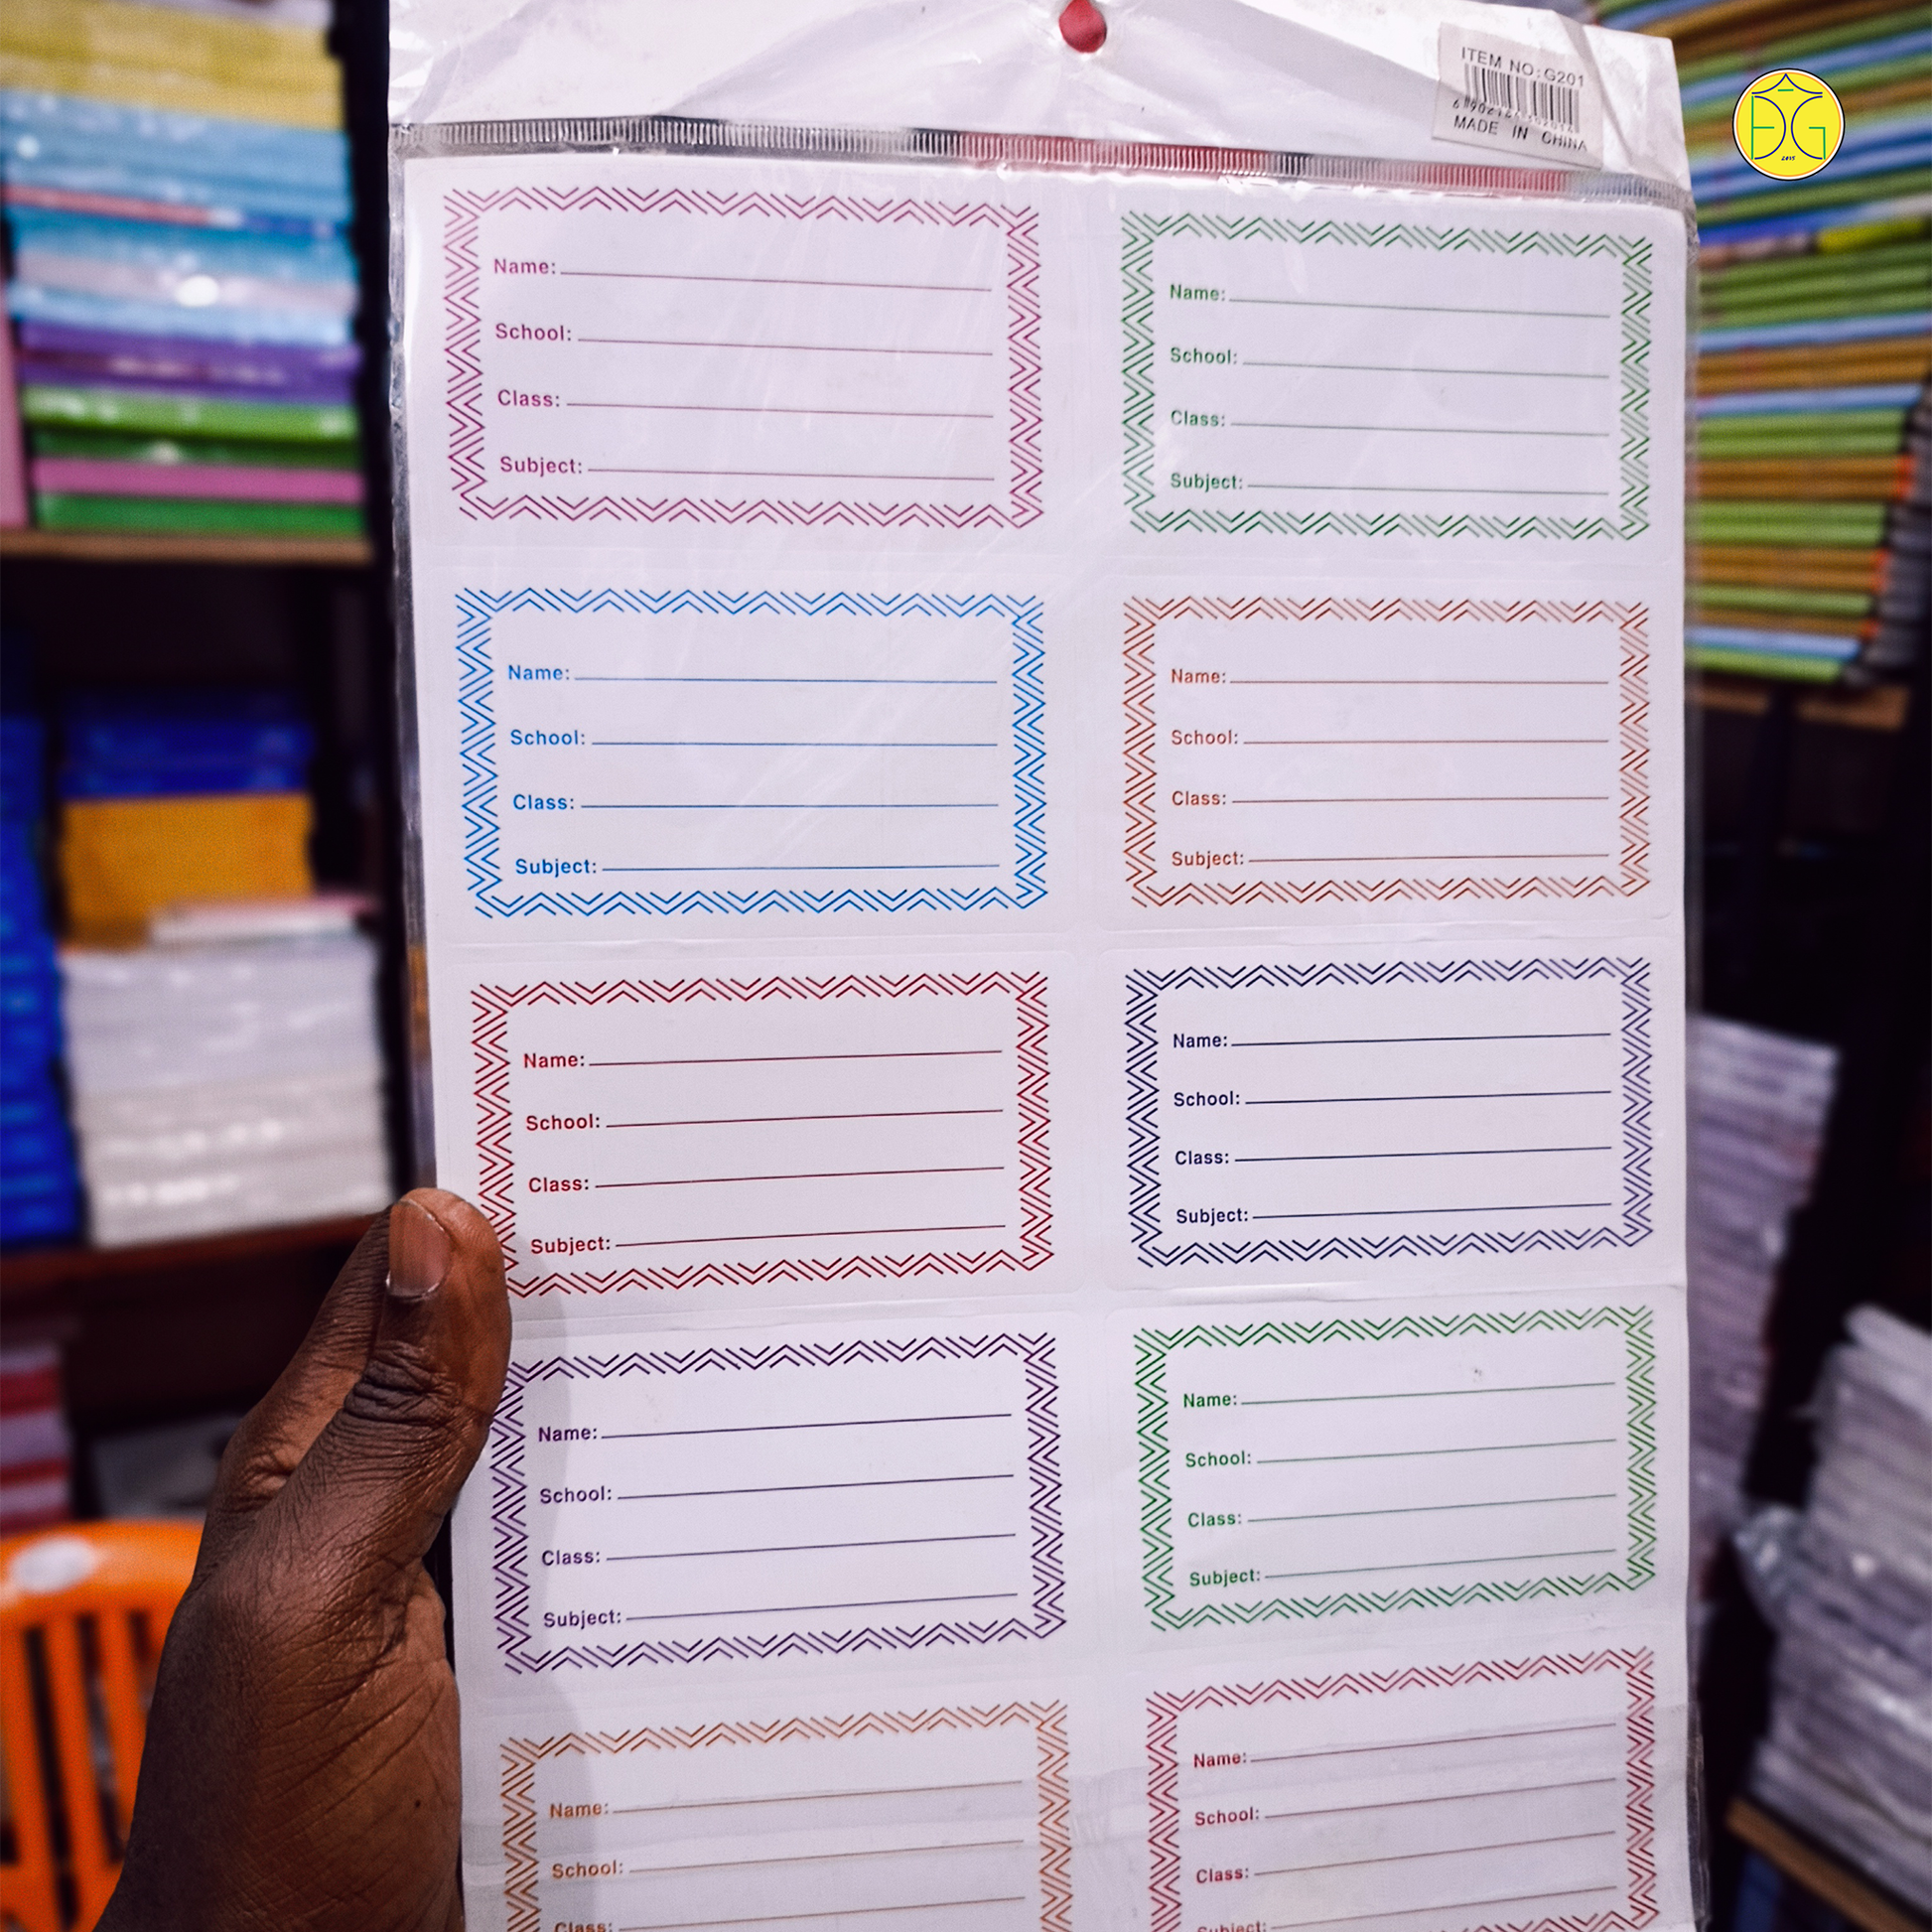 ITEM NO:G201
MADE IN CHINA
2015
Name:
School:
Class:
Subject:
Name:
School:
Class:
Subject:
Name:
School:
Class:
Subject:
Name:
School:
Class:
Subject:
Name:
School:
Class:
Subject:
Name:
School:
Class:
Subject:
Name:
School:
Class:
Subject:
Name:
School:
Class:
Subject:
Name:
School:
Class:
Name:
School:
Class:
Subject: